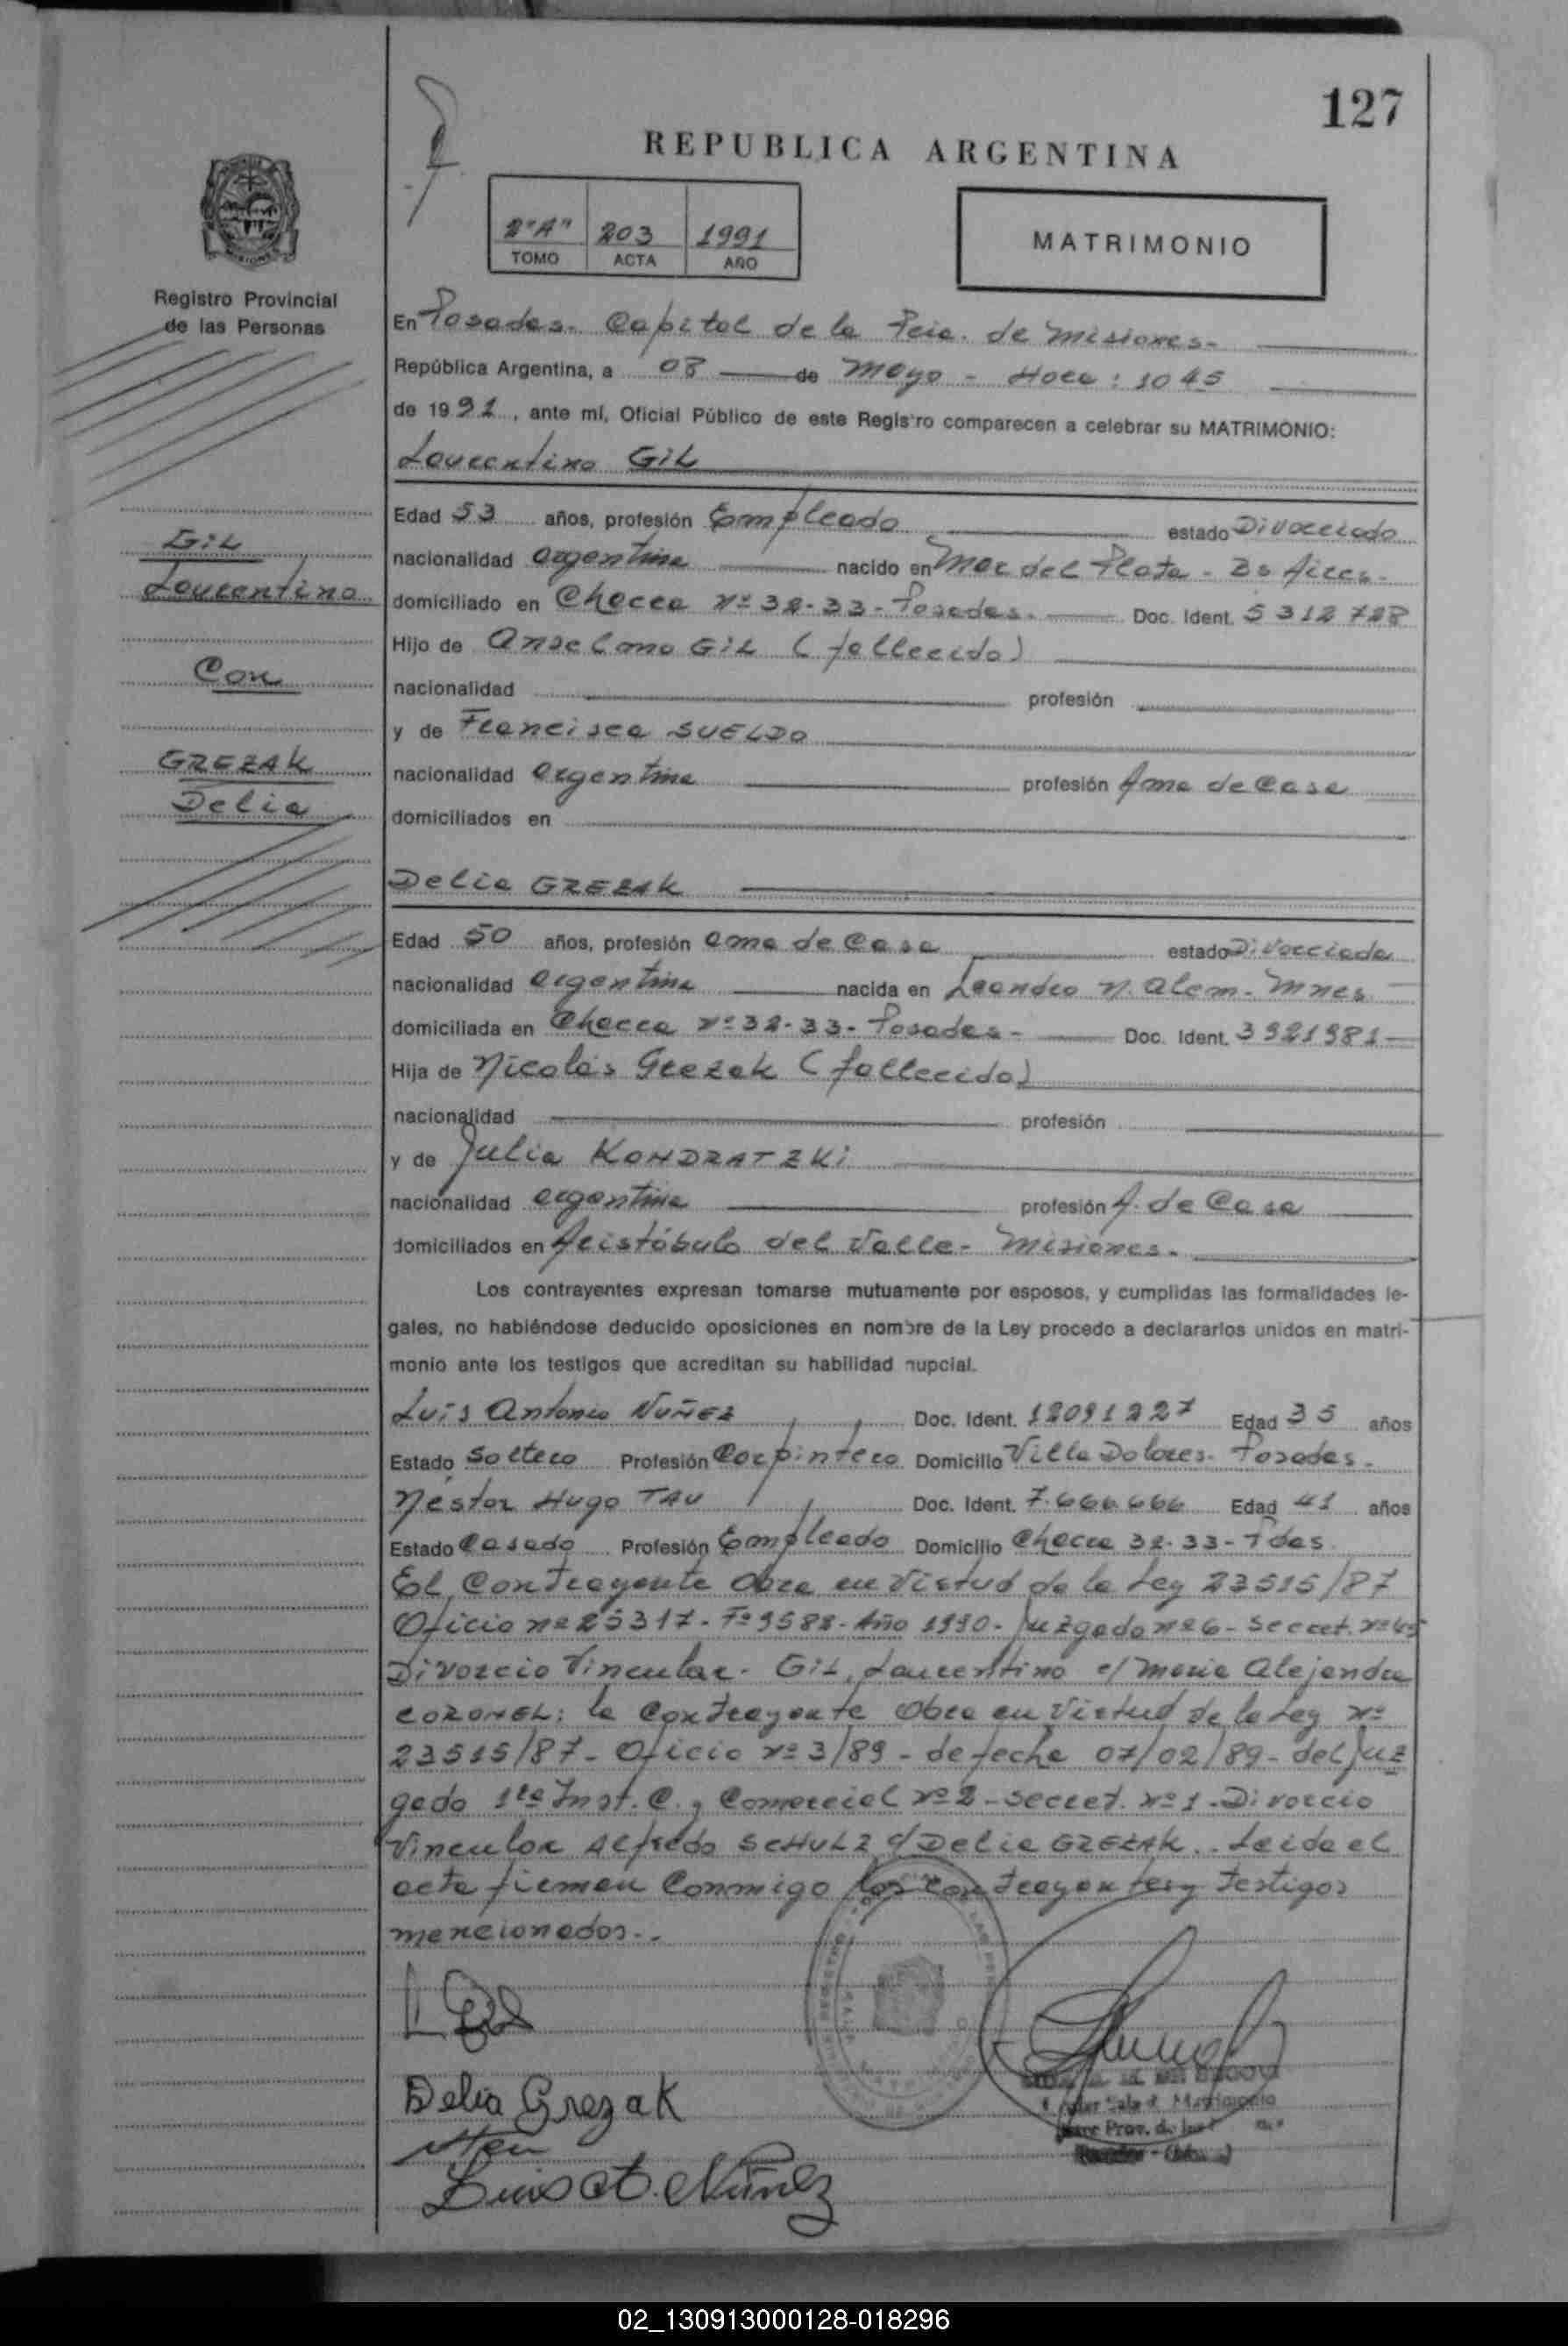 127
REPUBLICA ARGENTINA
2º"A" 203 1991
TOMO ACTA AÑO
MATRIMONIO
MISIONES
Registro Provincial
de las Personas
En Posadas. Capital de la Pcia. de Misiones-
República Argentina, a 08 de Mayo - Hora: 1045
de 1991, ante mí, Oficial Público de este Registro comparecen a celebrar su MATRIMONIO:
Laurentino GiL
Edad 53 años, profesión Empleado estado Divorciado
nacionalidad argentina nacido en Mar del Plata - Bs Aires-
domiciliado en Chacra nº 32-33- Posadas. Doc. Ident. 5312728
Hijo de Anselmo GiL (fallecido)
nacionalidad profesión
y de Francisca SUELDO
nacionalidad argentina profesión Ama de Casa
domiciliados en
GiL
Laurentino
Con
GREZAK
Delia
Delia GREZAK
Edad 50 años, profesión ama de Casa estado Divorciada
nacionalidad argentina nacida en Leandro N. Alem- Mnes
domiciliada en Chacra nº 32-33- Posadas- Doc. Ident. 3921981
Hija de Nicolás Grezak (fallecido)
nacionalidad profesión
y de Julia KONDRATZKi
nacionalidad argentina profesión A. de Casa
domiciliados en Aristóbulo del Valle- Misiones.
Los contrayentes expresan tomarse mutuamente por esposos, y cumplidas las formalidades le-
gales, no habiéndose deducido oposiciones en nombre de la Ley procedo a declararlos unidos en matri-
monio ante los testigos que acreditan su habilidad nupcial.
Luis Antonio NUÑEZ Doc. Ident. 12091227 Edad 35 años
Estado Soltero Profesión Carpintero Domicilio Villa Dolores- Posadas.
Néstor Hugo TAU Doc. Ident. 7.666.666 Edad 41 años
Estado Casado Profesión Empleado Domicilio Chacra 32-33-Pdas.
El Contrayente Obra en Virtud de la Ley 23515/87
Oficio nº 25317- Fº 9588- Año 1990- Juzgado nº 6- Secret. nº
Divorcio Vincular- GiL, Laurentino c/ Maria Alejandra
CORONEL; la Contrayente Obra en Virtud de la Ley nº
23515/87- Oficio nº 3/89 - de fecha 07/02/89- del Juz
gado 1ra Inst. C. y Comercial nº 2- Secret. nº 1- Divorcio
Vincular Alfredo SCHULZ c/ Delia GREZAK.. Leida el
acta firman Conmigo los contrayentes y testigos
mencionados..
Delia Grezak
Luis A. Nuñez
02_130913000128-018296